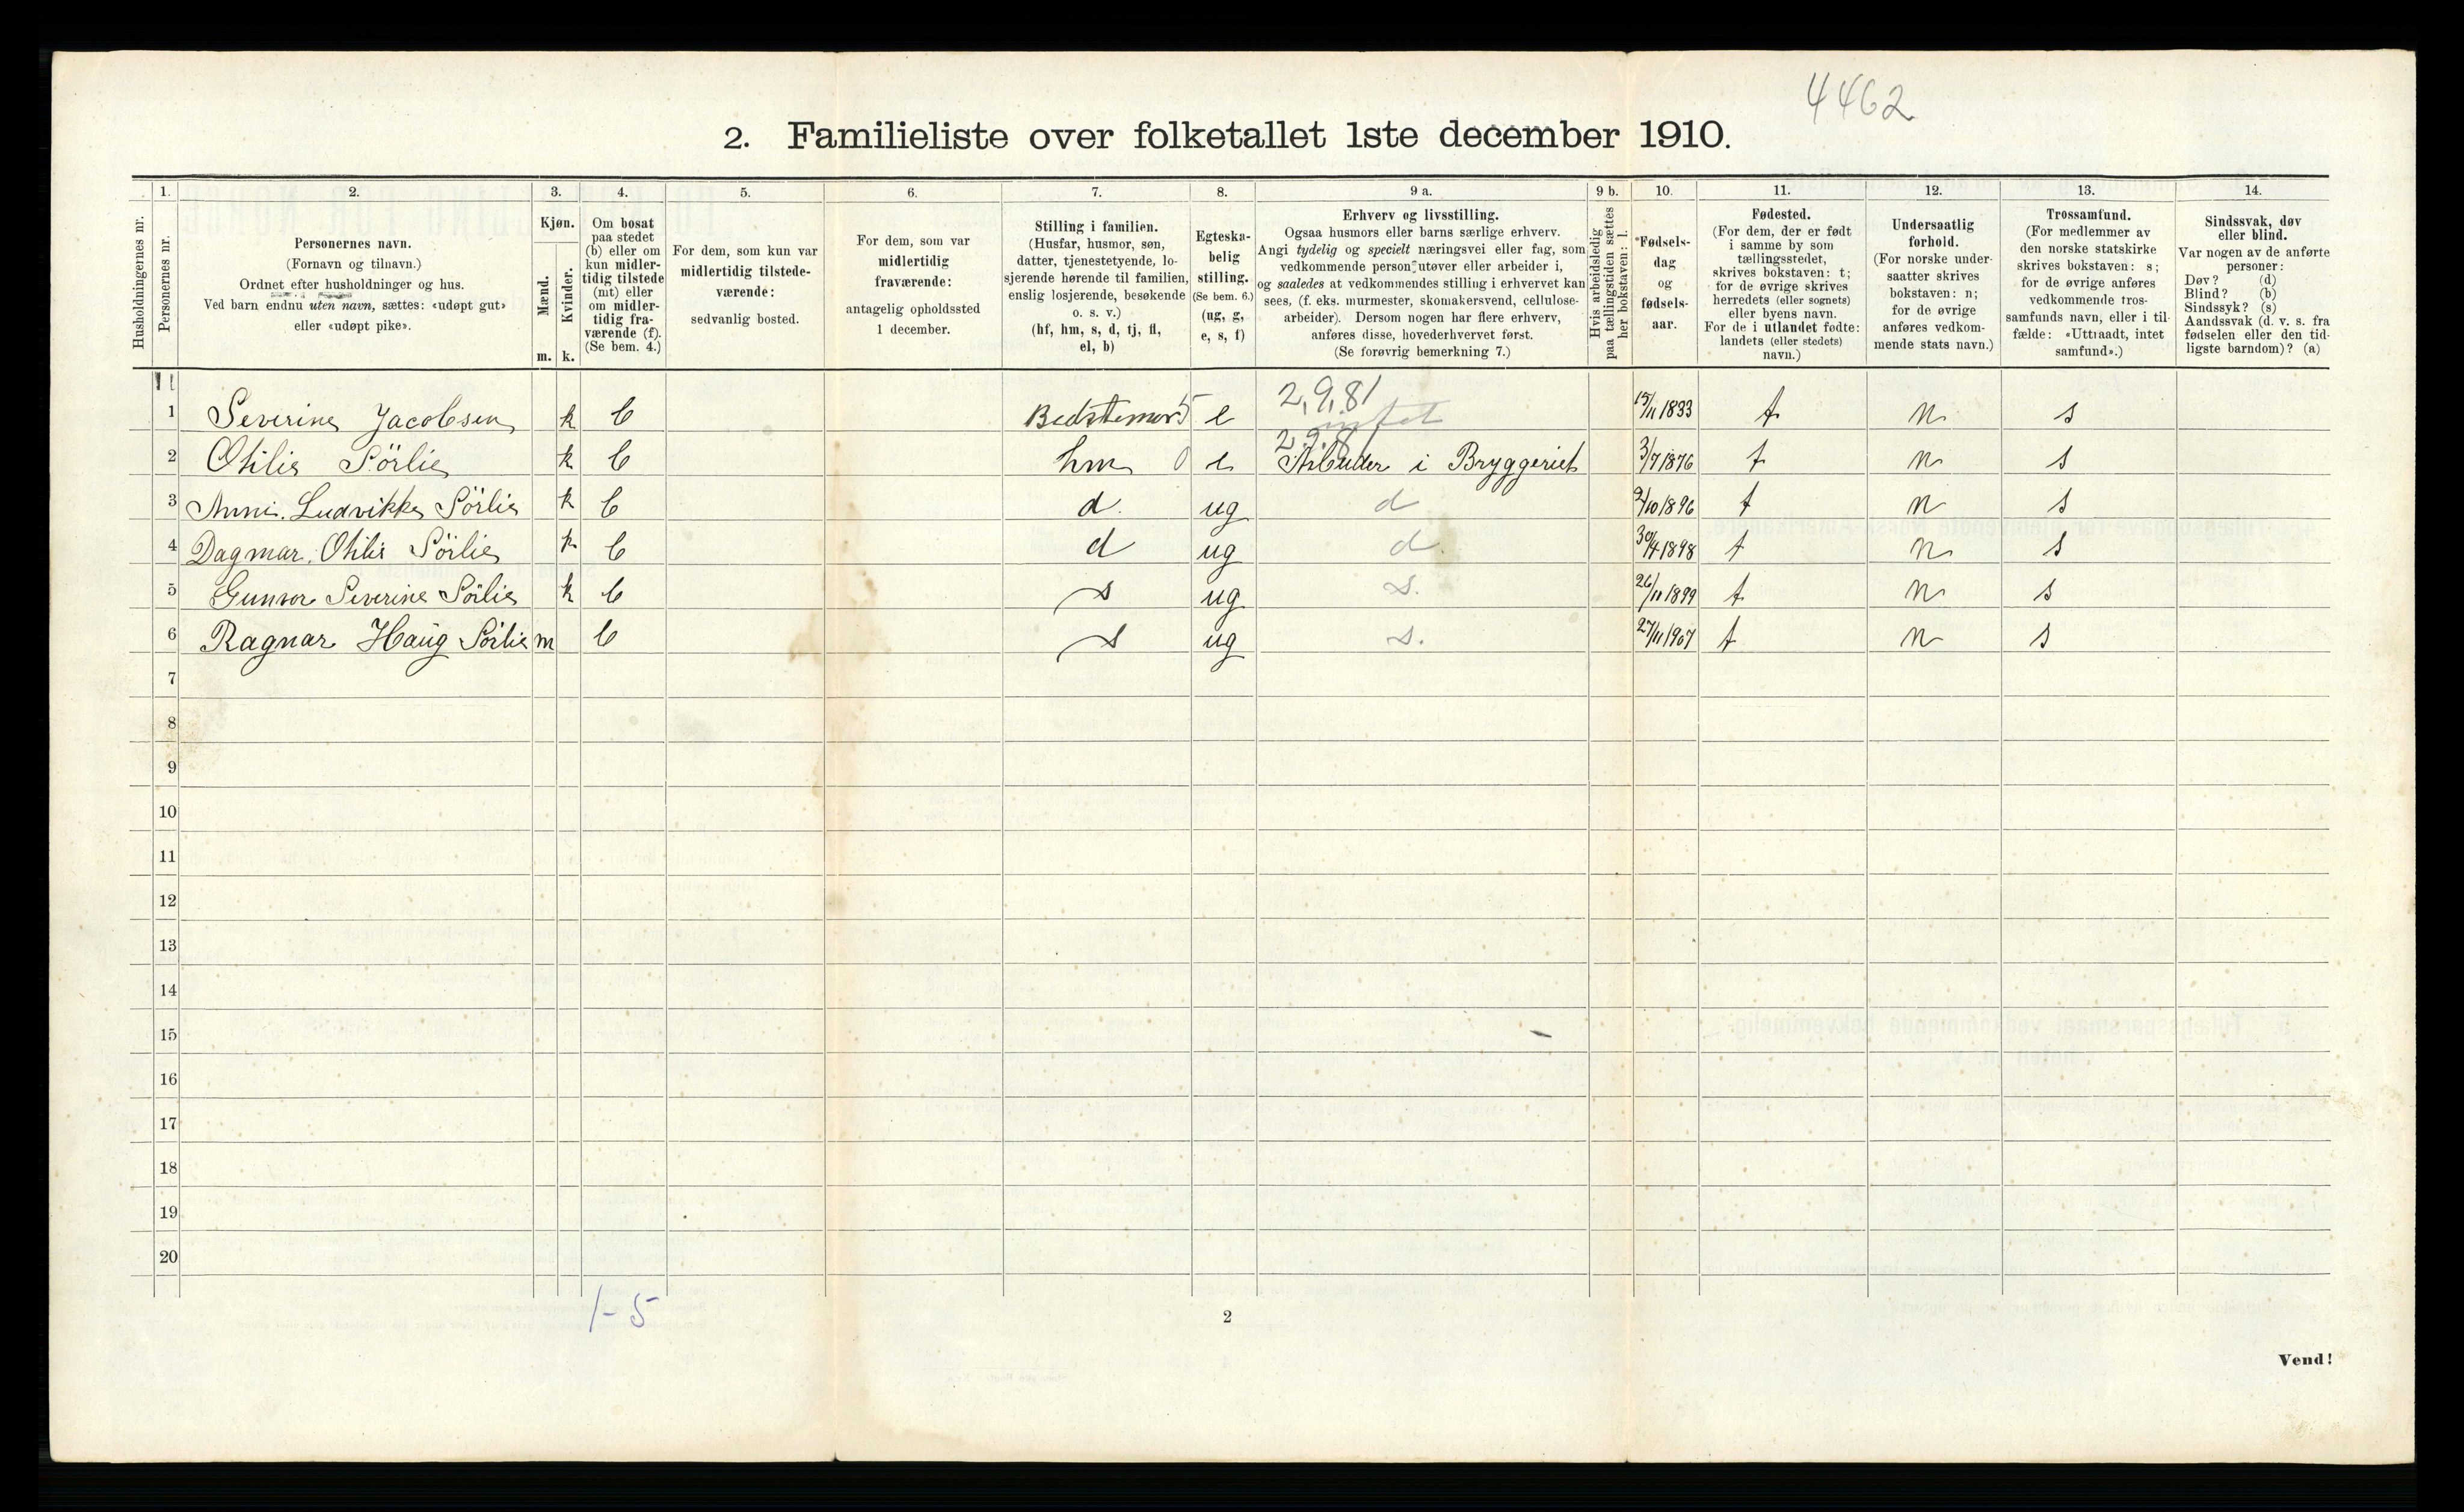 4462
2. Familieliste over folketallet 1ste december 1910.
1. 2. 3. 4. 5. 6. 7. 8. 9 a. 9 b. 10. 11. 12. 13. 14.
Husholdningernes nr.
Personernes nr.
Personernes navn.
(Fornavn og tilnavn.)
Ordnet efter husholdninger og hus.
Ved barn endnu uten navn, sættes: «udøpt gut»
eller «udøpt pike».
Kjøn.
Mænd.
Kvinder.
m. k.
Om bosat
paa stedet
(b) eller om
kun midler-
tidig tilstede
(mt) eller
om midler-
tidig fra-
værende (f).
(Se bem. 4.)
For dem, som kun var
midlertidig tilstede-
værende:
sedvanlig bosted.
For dem, som var
midlertidig
fraværende:
antagelig opholdssted
1 december.
Stilling i familien.
(Husfar, husmor, søn,
datter, tjenestetyende, lo-
sjerende hørende til familien,
enslig losjerende, besøkende
o. s. v.)
(hf, hm, s, d, tj, fl,
el, b)
Egteska-
belig
stilling.
(Se bem. 6.)
(ug, g,
e, s, f)
Erhverv og livsstilling.
Ogsaa husmors eller barns særlige erhverv.
Angi tydelig og specielt næringsvei eller fag, som
vedkommende person utøver eller arbeider i,
og saaledes at vedkommendes stilling i erhvervet kan
sees, (f. eks. murmester, skomakersvend, cellulose-
arbeider). Dersom nogen har flere erhverv,
anføres disse, hovederhvervet først.
(Se forøvrig bemerkning 7.)
Hvis arbeidsledig
paa tællingstiden sættes
her bokstaven: l.
Fødsels-
dag
og
fødsels-
aar.
Fødested.
(For dem, der er født
i samme by som
tællingsstedet,
skrives bokstaven: t;
for de øvrige skrives
herredets (eller sognets)
eller byens navn.
For de i utlandet fødte:
landets (eller stedets)
navn.)
Undersaatlig
forhold.
(For norske under-
saatter skrives
bokstaven: n;
for de øvrige
anføres vedkom-
mende stats navn.)
Trossamfund.
(For medlemmer av
den norske statskirke
skrives bokstaven: s;
for de øvrige anføres
vedkommende tros-
samfunds navn, eller i til-
fælde: «Uttraadt, intet
samfund».)
Sindssvak, døv
eller blind.
Var nogen av de anførte
personer:
Døv? (d)
Blind? (b)
Sindssyk? (s)
Aandssvak (d. v. s. fra
fødselen eller den tid-
ligste barndom)? (a)
2,9,81
1 Severine Jacobsen k b Bedstemor 5 e intet 15/11 1833 t n s
2.9.81
2 Othilie Sörlie k b hm 0 e Arbeider i Bryggeriet 3/7 1876 t n s
3 Anni. Ludvikke Sörlie k b d. ug d 9/10 1896 t n s
4 Dagmar. Othilie Sörlie k b d ug d. 30/4 1898 t n s
5 Gunvor Severine Sörlie k b s ug s. 26/11 1899 t n s
6 Ragnar Haug Sörlie m b s ug s. 27/11 1907 t n s
7
8
9
10
11
12
13
14
15
16
17
18
19
20
1-5
2
Vend!